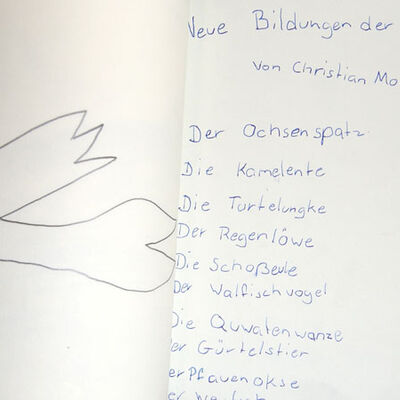 Neue Bildungen der
von Christian Mo
Der Ochsenspatz
Die Kamelente
Die Turtelungke
Der Regenlöwe
Die Schoßeule
Der Walfischvogel
Die Quwatenwanze
er Gürtelstier
er Pfauenokse